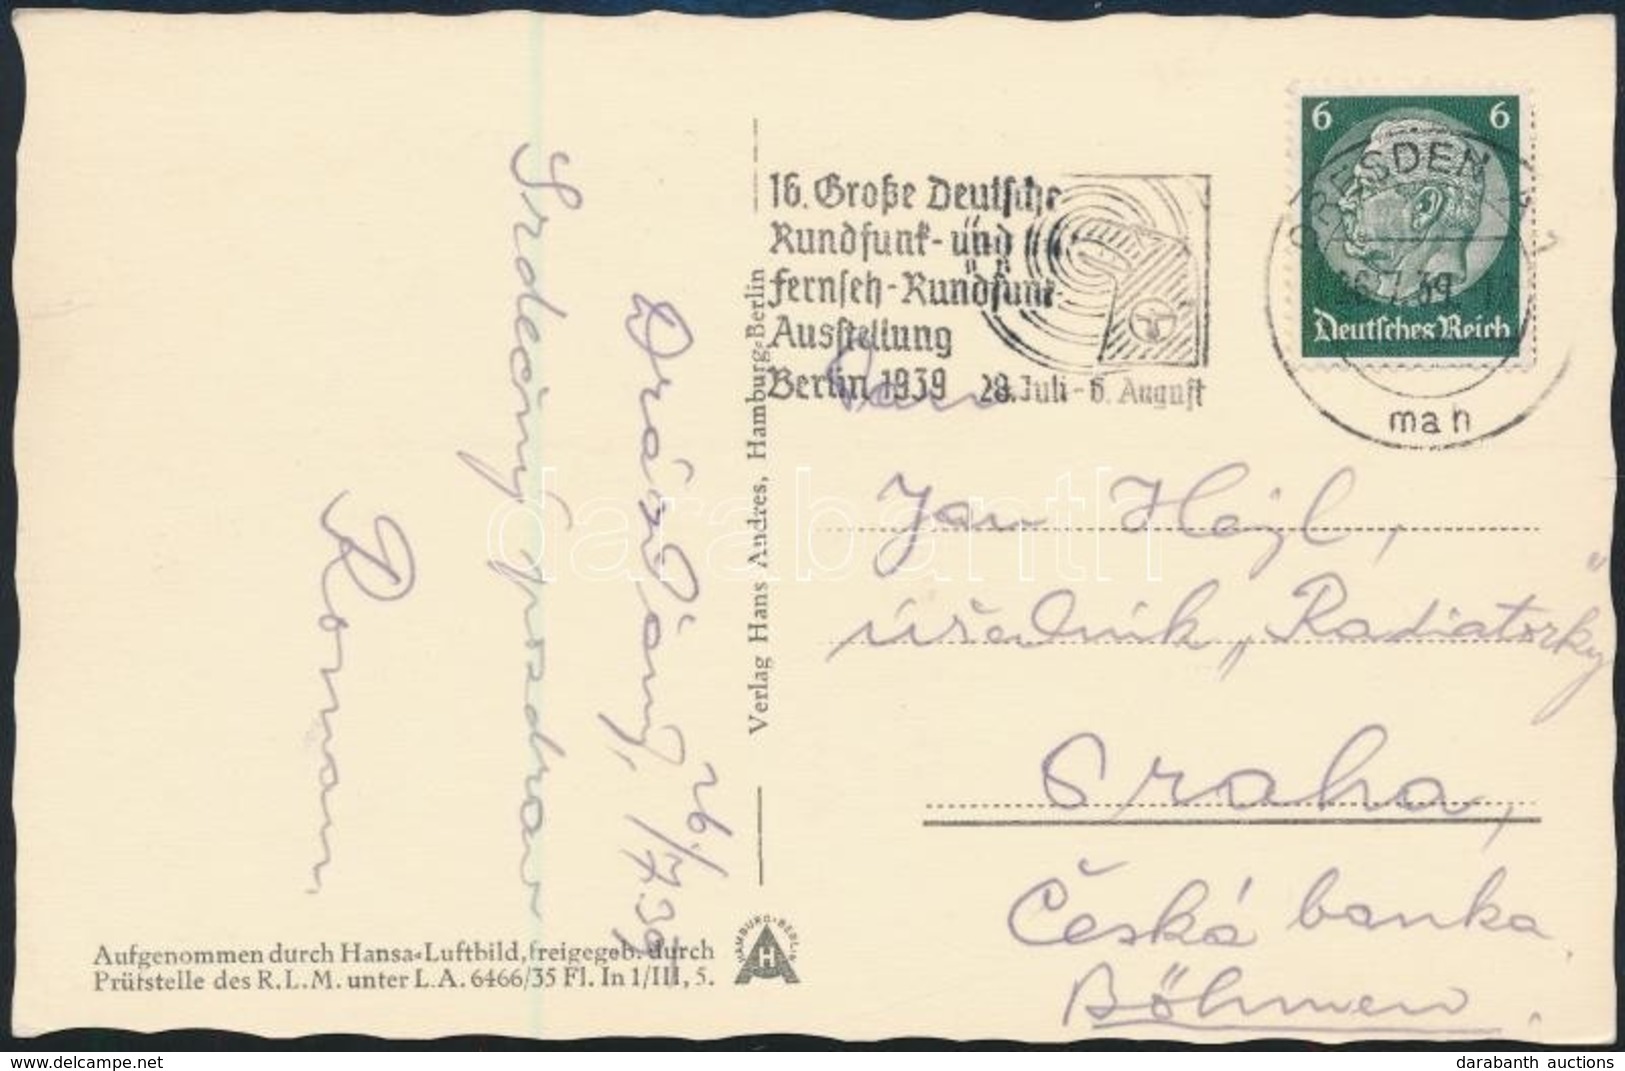 Drážďany, 26./7.39.
Srdečný pozdrav
Roman
Aufgenommen durch Hansa-Luftbild, freigegeb. durch
Prüfstelle des R.L.M. unter L.A. 6466/35 Fl. In 1/III, 5.
Verlag Hans Andres, Hamburg-Berlin
HAMBURG-BERLIN
H
16. Große Deutsche
Rundfunk- und
Fernseh-Rundfunk-
Ausstellung
Berlin 1939 28. Juli - 6. August
6 6
Deutsches Reich
DRESDEN
26.7.39
mah
Pan
Jan Hájl,
úředník „Radiatorky"
Praha,
Česká banka.
Böhmen.
darabanth
delcampe.net
darabanth auctions